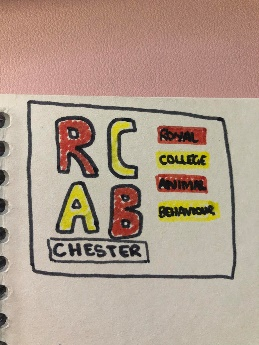 RC
AB
CHESTER
ROYAL
COLLEGE
ANIMAL
BEHAVIOUR